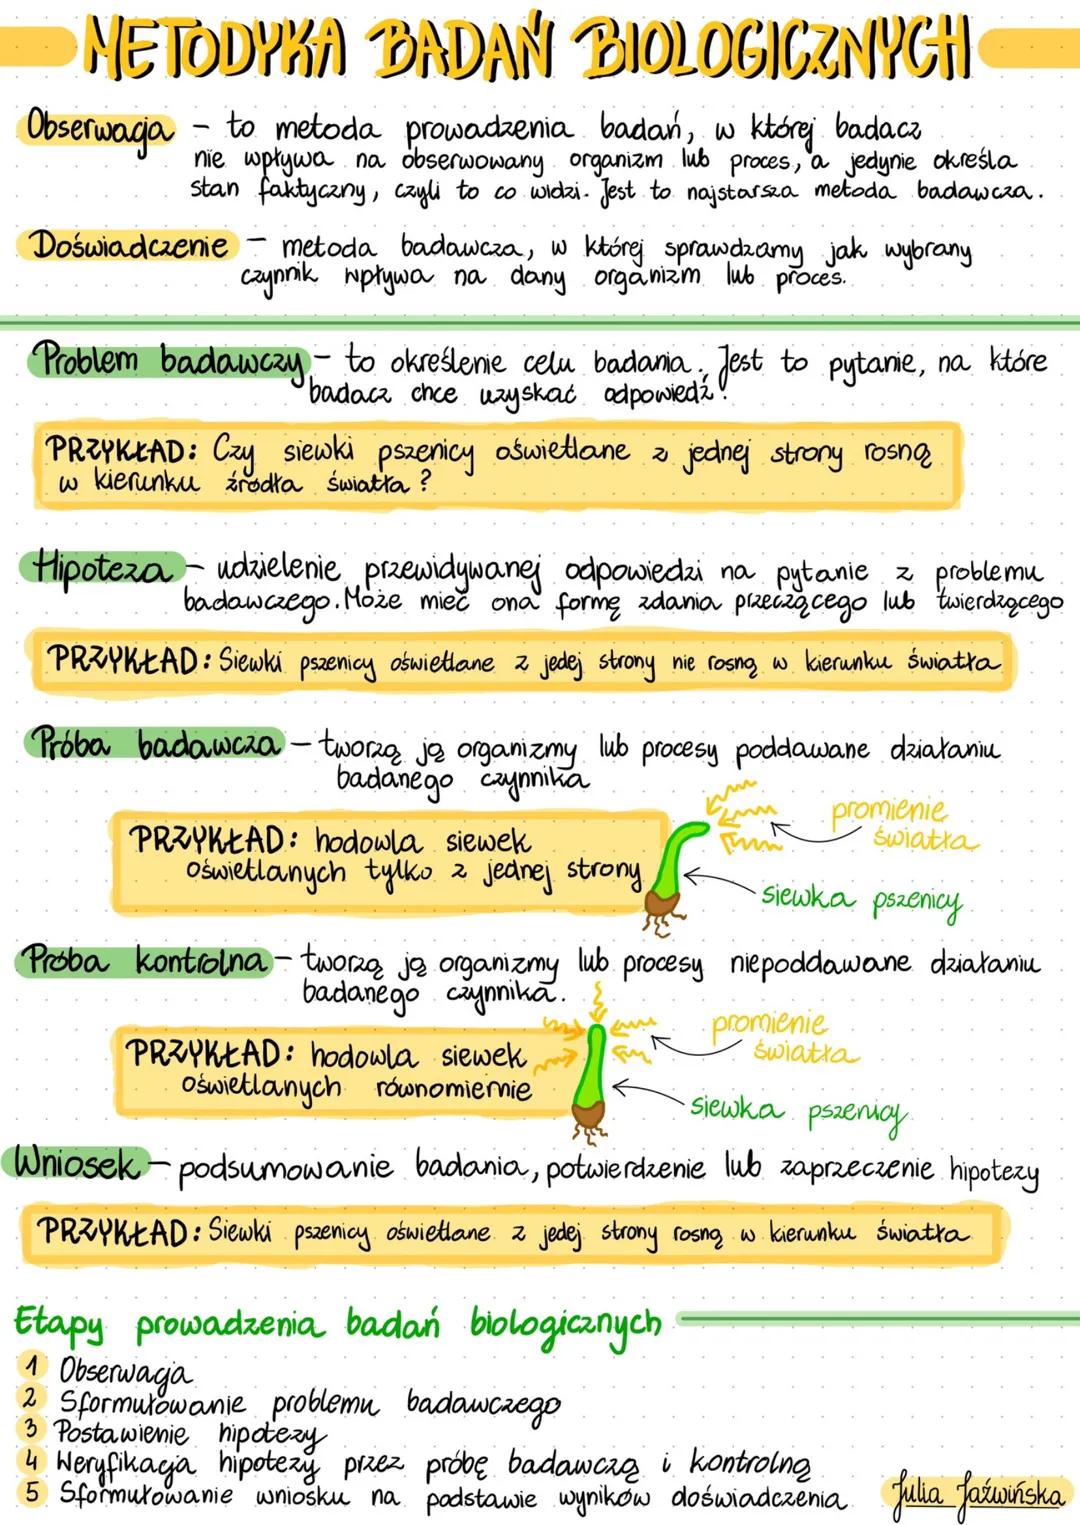 METODYKA BADAŃ BIOLOGICZNYCH
Obserwacja - to metoda prowadzenia badań, w której badacz
nie wpływa na obserwowany organizm lub proces, a jedynie określa
stan faktyczny, czyli to co widzi. Jest to najstarsza metoda badawcza.
Doświadczenie - metoda badawcza, w której sprawdzamy jak wybrany
czynnik wpływa na dany organizm lub proces.
Problem badawczy - to określenie celu badania. Jest to pytanie, na które
badacz chce uzyskać odpowiedź.
PRZYKŁAD: Czy siewki pszenicy oświetlane z jednej strony rosną
w kierunku źródła światła?
Hipoteza - udzielenie przewidywanej odpowiedzi na pytanie z problemu
badawczego. Może mieć ona formę zdania przeczącego lub twierdzącego
PRZYKŁAD: Siewki pszenicy oświetlane z jedej strony nie rosną w kierunku światła
Próba badawcza - tworzą ją organizmy lub procesy poddawane działaniu
badanego czynnika
promienie
światła
PRZYKŁAD: hodowla siewek
oświetlanych tylko z jednej strony
siewka pszenicy
Próba kontrolna - tworzą ją organizmy lub procesy niepoddawane działaniu
badanego czynnika.
promienie
światła
PRZYKŁAD: hodowla siewek
oświetlanych równomiernie
siewka pszenicy
Wniosek - podsumowanie badania, potwierdzenie lub zaprzeczenie hipotezy
PRZYKŁAD: Siewki pszenicy oświetlane z jedej strony rosną w kierunku światła
Etapy prowadzenia badań biologicznych
1 Obserwacja
2 Sformułowanie problemu badawczego
3 Postawienie hipotezy
4 Weryfikacja hipotezy przez próbę badawczą i kontrolną
5 Sformułowanie wniosku na podstawie wyników doświadczenia
Julia Jaźwińska